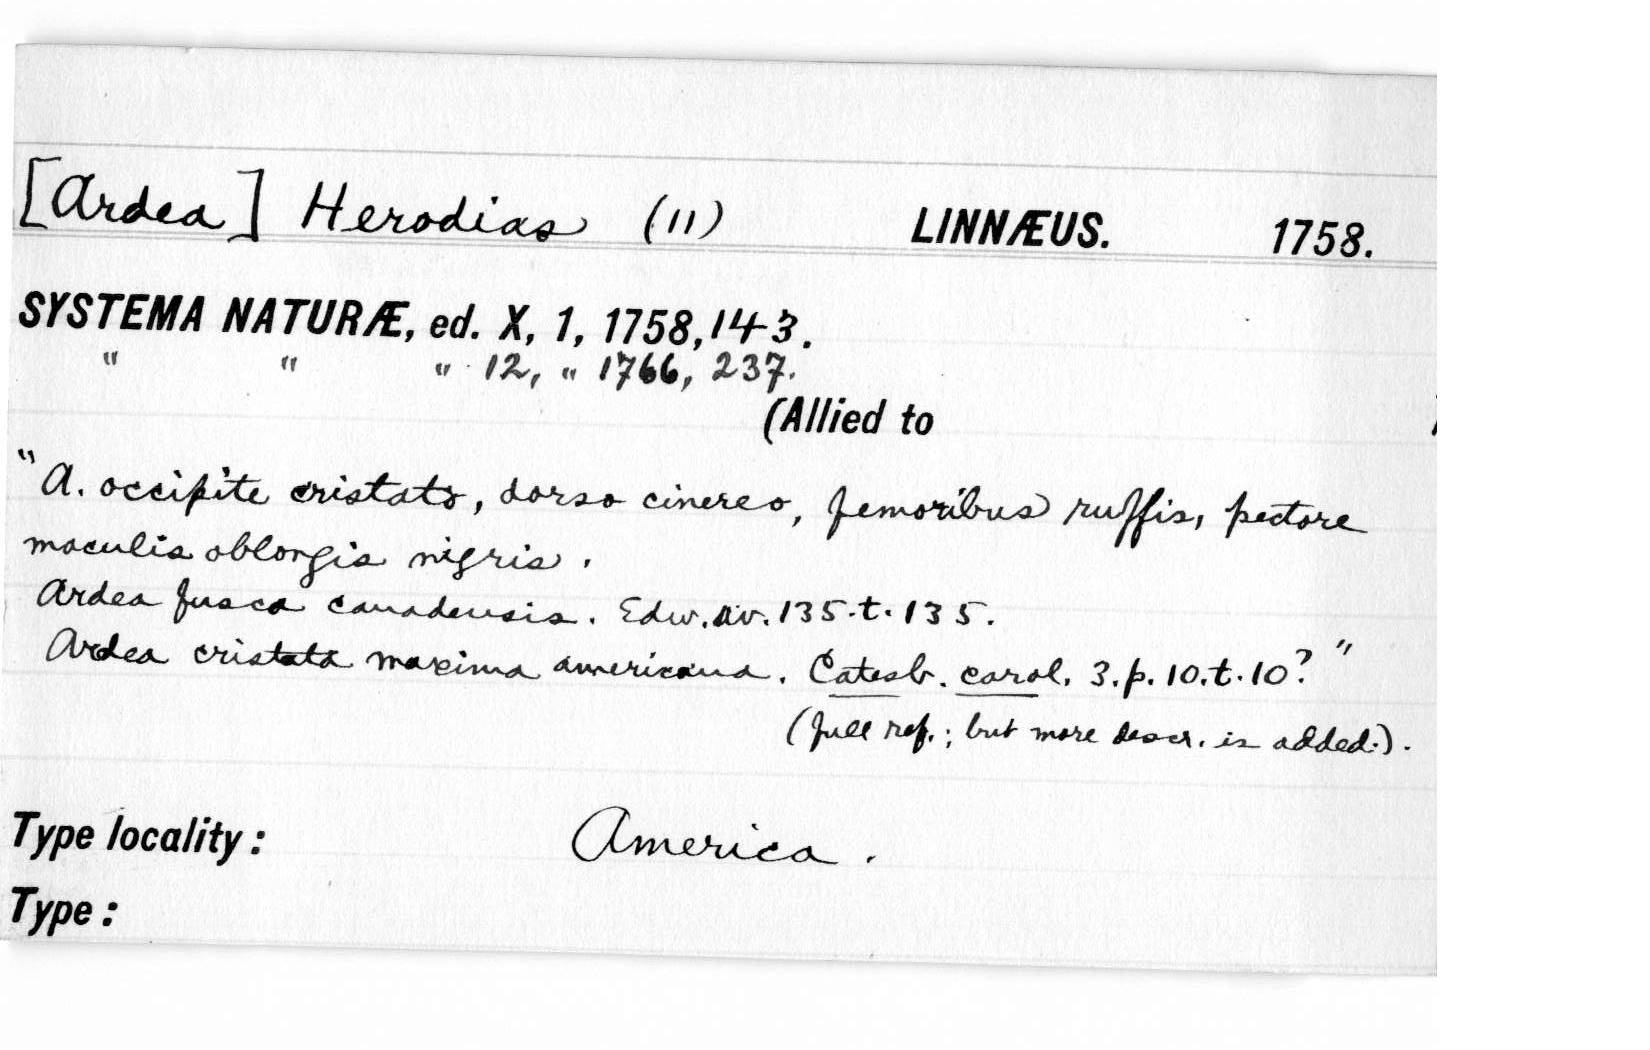 [Ardea] Herodias (11) LINNÆUS. 1758.
SYSTEMA NATURÆ, ed. X, 1, 1758, 143.
" " " 12, " 1766, 237.
(Allied to )
"A. occipite cristato, dorso cinereo, femoribus ruffis, pectore
maculis oblongis nigris.
Ardea fusca canadensis. Edw. av. 135. t. 135.
Ardea cristata maxima americana. Catesb. carol. 3. p. 10. t. 10?"
(full ref.; but more descr. is added.).
Type locality: America.
Type: